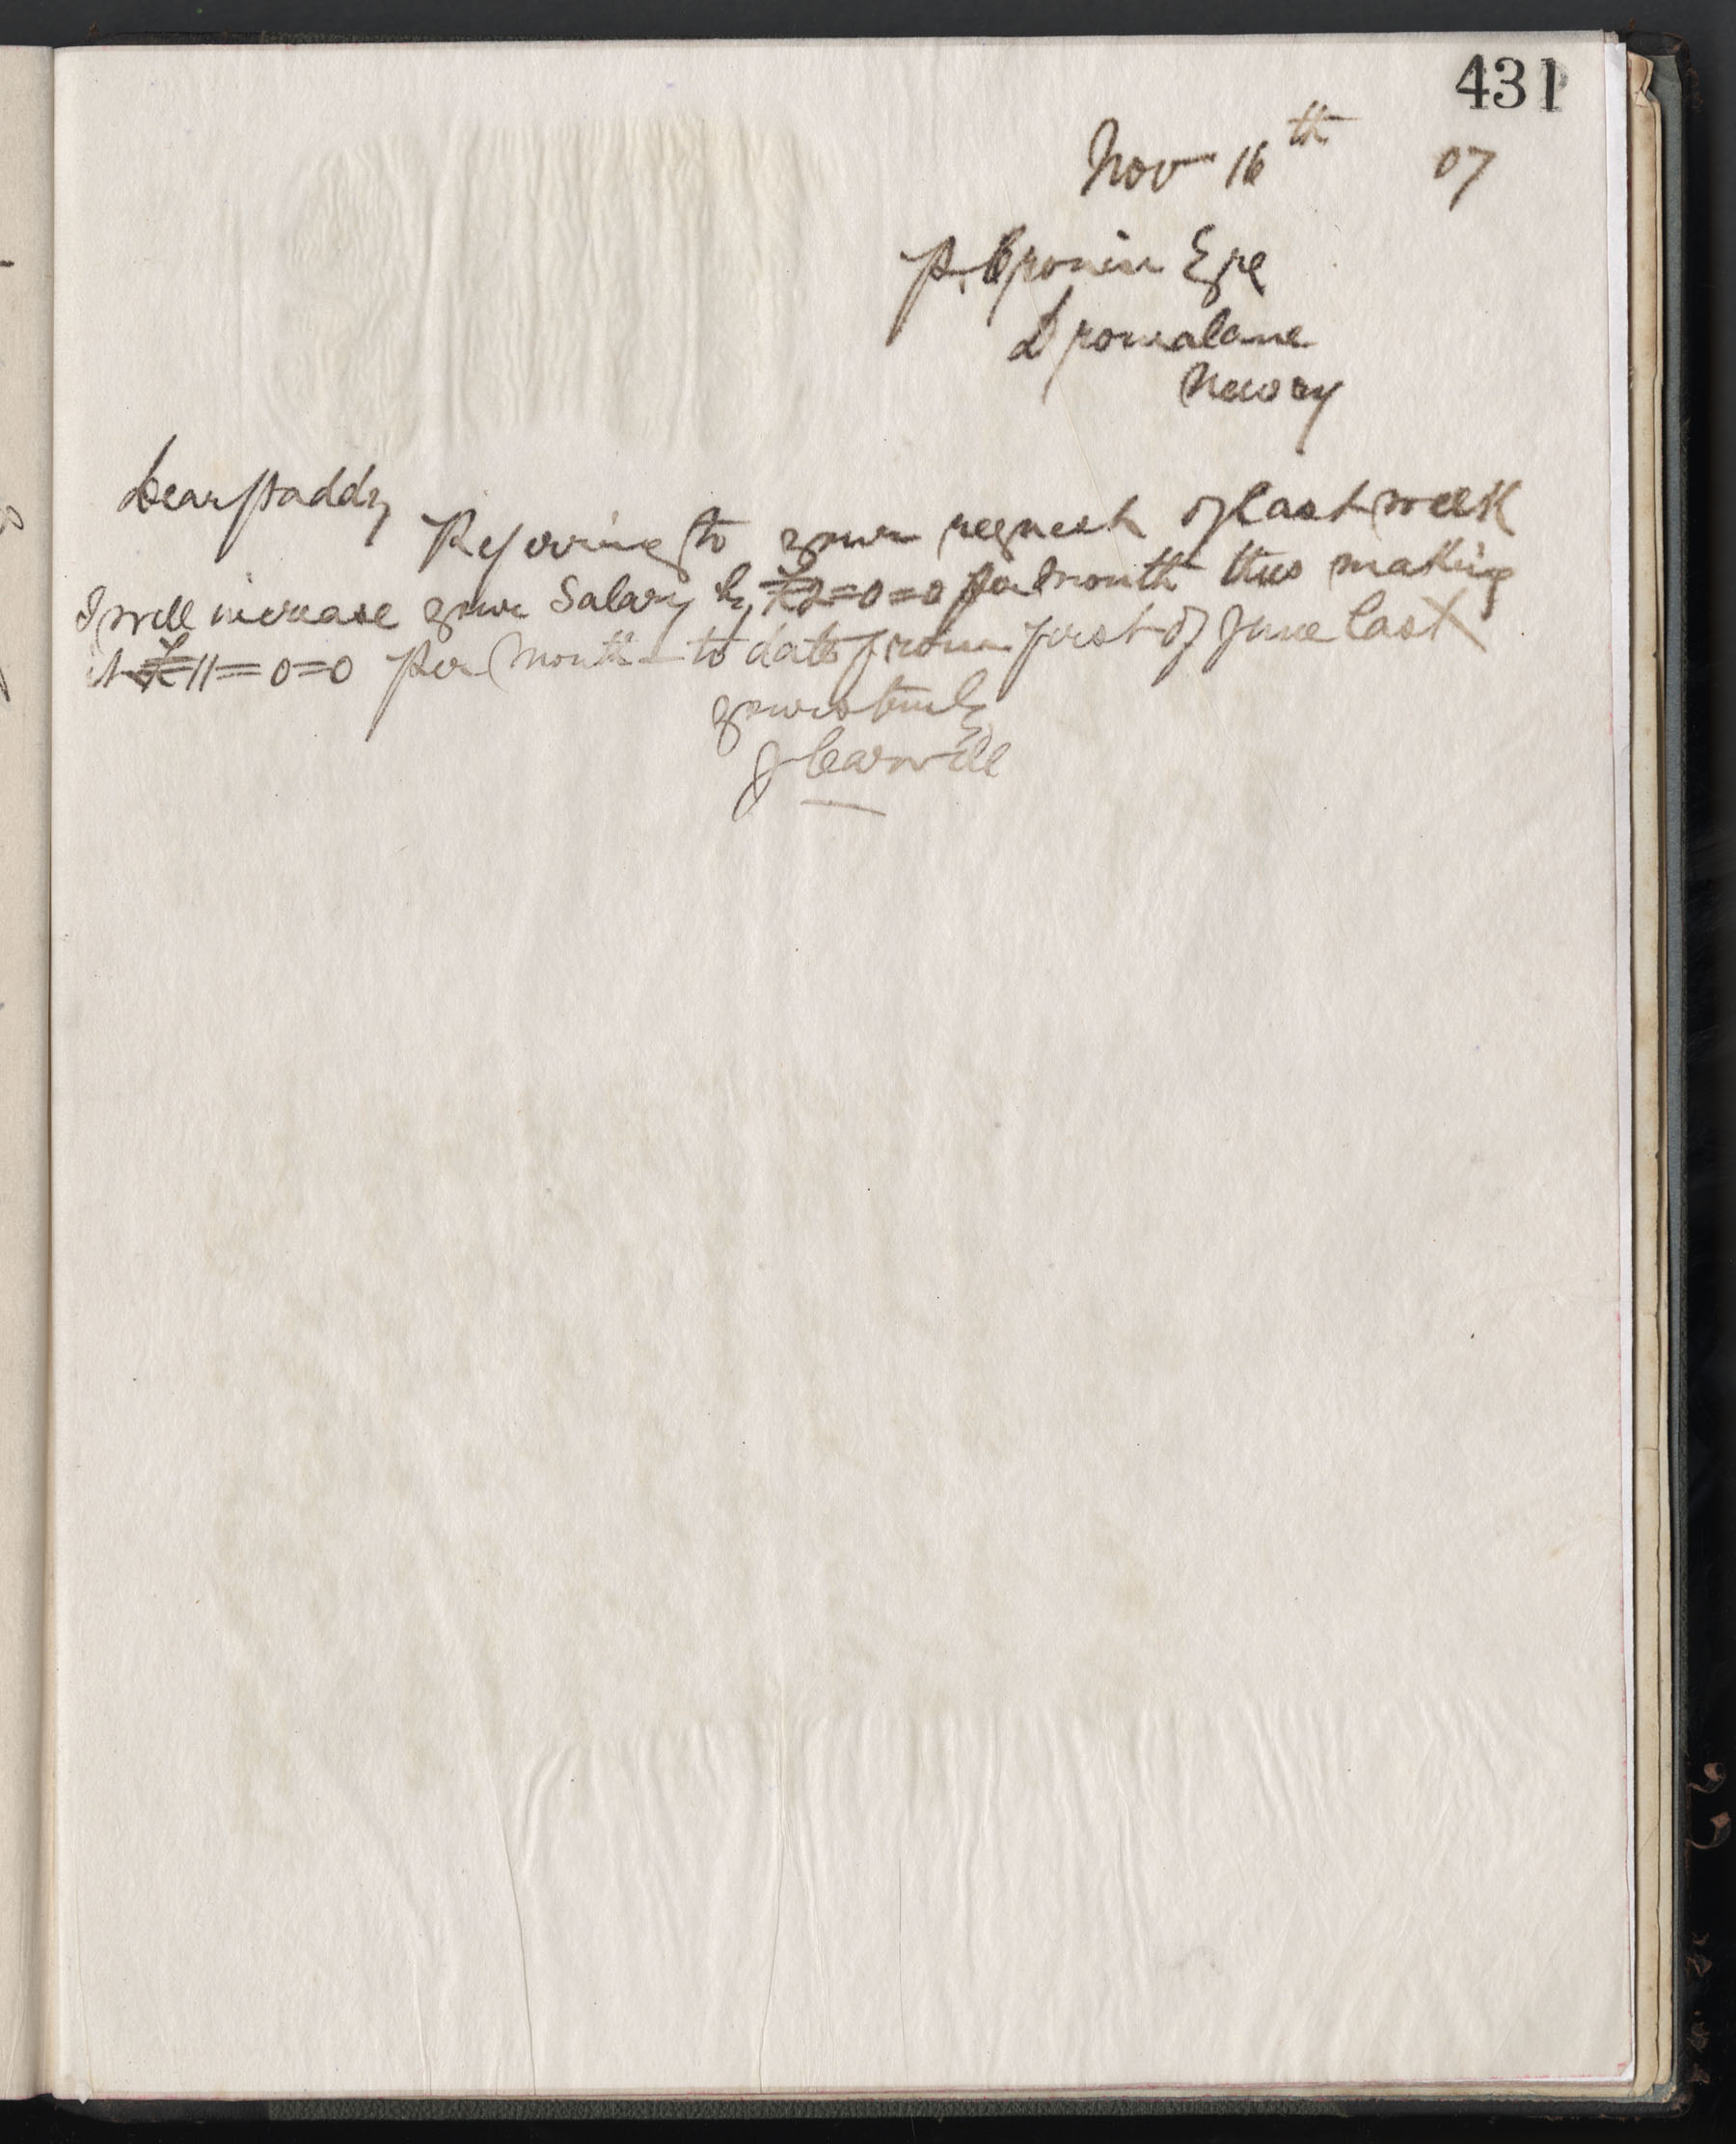 431
Nov 16th 07
P. Cronin Esqe
Dromalane
Newry
Dear Paddy
Referring to your request of last week
I will increase your Salary by £2=0=0 per month thus making
it £11=0=0 per Month to date from first of June last
yours truly
J Carvill